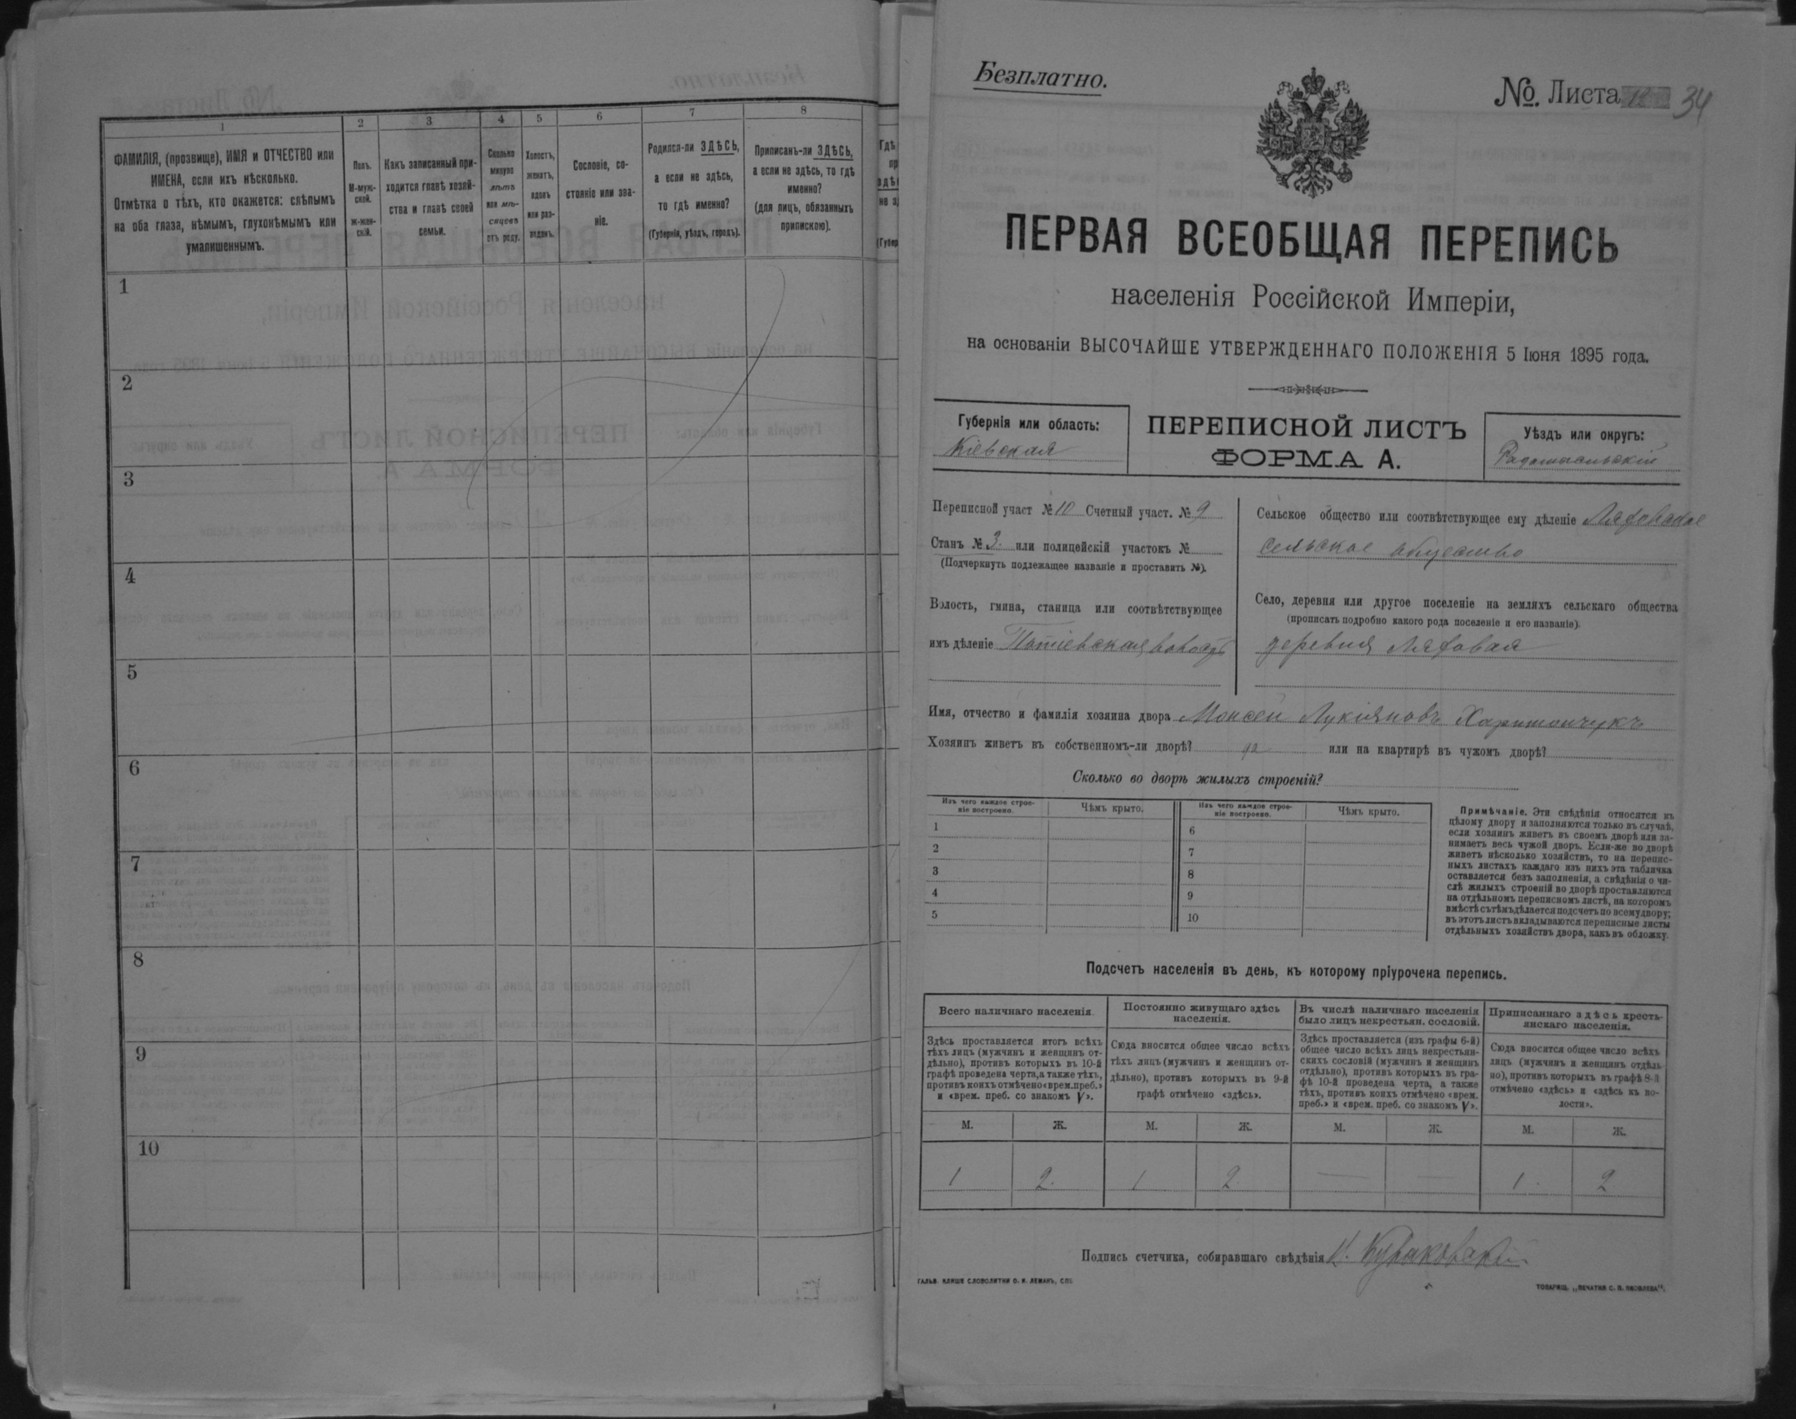 1
2
3
4
5
6
7
8
ФАМИЛІЯ, (прозвище), ИМЯ и ОТЧЕСТВО или
ИМЕНА, если ихъ нѣсколько.
Отмѣтка о тѣхъ, кто окажется: слѣпымъ
на оба глаза, нѣмымъ, глухонѣмымъ или
умалишеннымъ.
Полъ.
М-муж-
ской.
Ж-жен-
скій.
Какъ записанный при-
ходится главѣ хозяй-
ства и главѣ своей
семьи.
Сколько
минуло
лѣтъ
или мѣ-
сяцевъ
отъ роду.
Холостъ,
женатъ,
вдовъ
или раз-
веденъ.
Сословіе, со-
стояніе или зва-
ніе.
Родился-ли ЗДѢСЬ,
а если не здѣсь,
то гдѣ именно?
(Губернія, уѣздъ, городъ).
Приписанъ-ли ЗДѢСЬ,
а если не здѣсь, то гдѣ
именно?
(для лицъ, обязанныхъ
припискою).
1
2
3
4
5
6
7
8
9
10
Безплатно.
№. Листа 34
ПЕРВАЯ ВСЕОБЩАЯ ПЕРЕПИСЬ
населенія Россійской Имперіи,
на основаніи ВЫСОЧАЙШЕ УТВЕРЖДЕННАГО ПОЛОЖЕНІЯ 5 Іюня 1895 года.
Губернія или область:
Кіевская
ПЕРЕПИСНОЙ ЛИСТЪ
ФОРМА А.
Уѣздъ или округъ:
Радомысльскій
Переписной участ № 10 Счетный участ. № 9
Станъ № 3. или полицейскій участокъ №
(Подчеркнуть подлежащее названіе и проставить №).
Волость, гмина, станица или соотвѣтствующее
имъ дѣленіе Потіевская волость
Сельское общество или соотвѣтствующее ему дѣленіе Лядовское
сельское общество
Село, деревня или другое поселеніе на земляхъ сельскаго общества
(прописать подробно какого рода поселеніе и его названіе).
деревня Лядовая
Имя, отчество и фамилія хозяина двора Моисей Лукіяновъ Харитончукъ
Хозяинъ живетъ въ собственномъ-ли дворѣ? да или на квартирѣ въ чужомъ дворѣ?
Сколько во дворѣ жилыхъ строеній?
Изъ чего каждое строе-
ніе построено.
Чѣмъ крыто.
Изъ чего каждое строе-
ніе построено.
Чѣмъ крыто.
1
2
3
4
5
6
7
8
9
10
Примѣчаніе. Эти свѣдѣнія относятся къ
цѣлому двору и заполняются только въ случаѣ,
если хозяинъ живетъ въ своемъ дворѣ или за-
нимаетъ весь чужой дворъ. Если-же во дворѣ
живетъ нѣсколько хозяйствъ, то на перепис-
ныхъ листахъ каждаго изъ нихъ эта табличка
оставляется безъ заполненія, а свѣдѣнія о чи-
слѣ жилыхъ строеній во дворѣ проставляются
на отдѣльномъ переписномъ листѣ, на которомъ
вмѣстѣ съ тѣмъ дѣлается подсчетъ по всему двору;
въ этотъ листъ вкладываются переписные листы
отдѣльныхъ хозяйствъ двора, какъ въ обложку.
Подсчетъ населенія въ день, къ которому пріурочена перепись.
Всего наличнаго населенія.
Здѣсь проставляется итогъ всѣхъ
тѣхъ лицъ (мужчинъ и женщинъ от-
дѣльно), противъ которыхъ въ 10-й
графѣ проведена черта, а также тѣхъ,
противъ коихъ отмѣчено «врем. преб.»
и «врем. преб. со знакомъ V».
Постоянно живущаго здѣсь
населенія.
Сюда вносится общее число всѣхъ
тѣхъ лицъ (мужчинъ и женщинъ от-
дѣльно), противъ которыхъ въ 9-й
графѣ отмѣчено «здѣсь».
Въ числѣ наличнаго населенія
было лицъ некрестьян. сословій.
Здѣсь проставляется (изъ графы 6-й)
общее число всѣхъ лицъ некрестьян-
скихъ сословій (мужчинъ и женщинъ
отдѣльно), противъ которыхъ въ гра-
фѣ 10-й проведена черта, а также
тѣхъ, противъ коихъ отмѣчено «врем.
преб.» и «врем. преб. со знакомъ V».
Приписаннаго здѣсь кресть-
янскаго населенія.
Сюда вносится общее число всѣхъ
лицъ (мужчинъ и женщинъ отдѣль-
но), противъ которыхъ въ графѣ 8-й
отмѣчено «здѣсь» и «здѣсь къ во-
лости».
М. Ж. М. Ж. М. Ж. М. Ж.
1 2. 1 2 — — 1. 2
Подпись счетчика, собиравшаго свѣдѣнія
ГАЛЬВ. КЛИШЕ СЛОВОЛИТНИ О. И. ЛЕМАНЪ, СПБ.
ТОВАРИЩ. „ПЕЧАТНЯ С. П. ЯКОВЛЕВА".